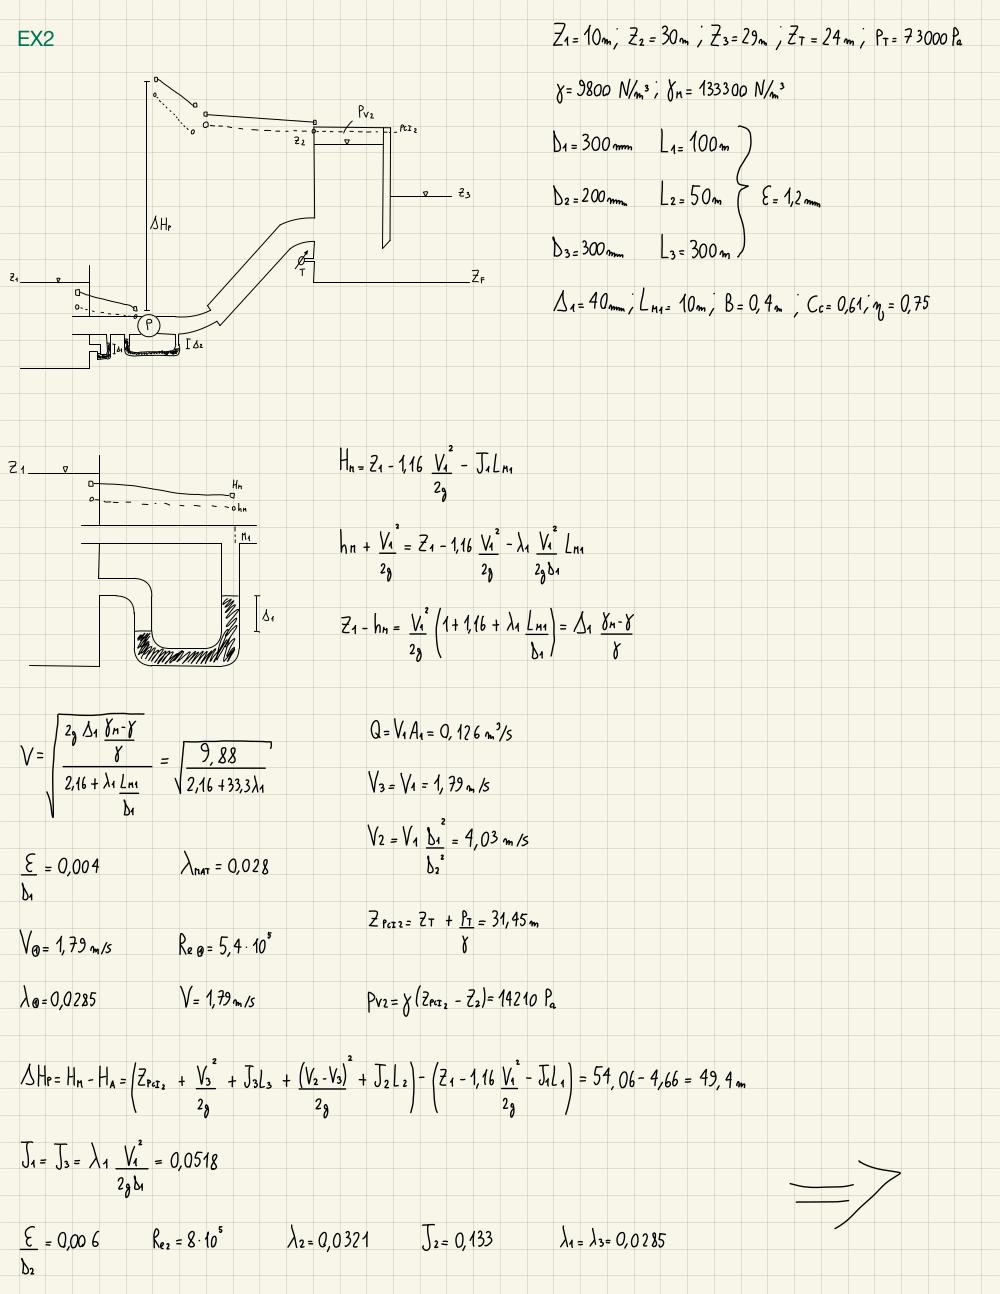 EX2
Z1 = 10m ; Z2 = 30m ; Z3 = 29m ; ZT = 24m ; PT = 73000 Pa
γ = 9800 N/m³ ; γM = 133300 N/m³
D1 = 300mm L1 = 100m
D2 = 200mm L2 = 50m ε = 1,2mm
D3 = 300mm L3 = 300m
Δ1 = 40mm ; LM1 = 10m ; B = 0,4m ; Cc = 0,61 ; η = 0,75
Pv2
PCI2
Z2
Z3
ΔHP
T
ZF
Z1
P
Δ1
Δ2
Z1
HM
hM
M1
Δ1
HM = Z1 - 1,16 V1²/2g - J1 LM1
hM + V1²/2g = Z1 - 1,16 V1²/2g - λ1 V1²/2gD1 LM1
Z1 - hM = V1²/2g (1 + 1,16 + λ1 LM1/D1) = Δ1 (γM-γ)/γ
V = √(2g Δ1 (γM-γ)/γ / (2,16 + λ1 LM1/D1)) = √(9,88 / (2,16 + 33,3λ1))
ε/D1 = 0,004 λMAT = 0,028
V① = 1,79 m/s Re① = 5,4·10⁵
λ① = 0,0285 V = 1,79 m/s
Q = V1 A1 = 0,126 m³/s
V3 = V1 = 1,79 m/s
V2 = V1 D1²/D2² = 4,03 m/s
ZPCI2 = ZT + PT/γ = 31,45 m
Pv2 = γ (ZPCI2 - Z2) = 14210 Pa
ΔHP = HM - HA = (ZPCI2 + V3²/2g + J3L3 + (V2-V3)²/2g + J2L2) - (Z1 - 1,16 V1²/2g - J1L1) = 54,06 - 4,66 = 49,4 m
J1 = J3 = λ1 V1²/2gD1 = 0,0518
ε/D2 = 0,006 Re2 = 8·10⁵ λ2 = 0,0321 J2 = 0,133 λ1 = λ3 = 0,0285